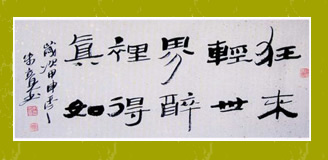 狂來
輕世
界醉
裡得
眞如
歲次甲申